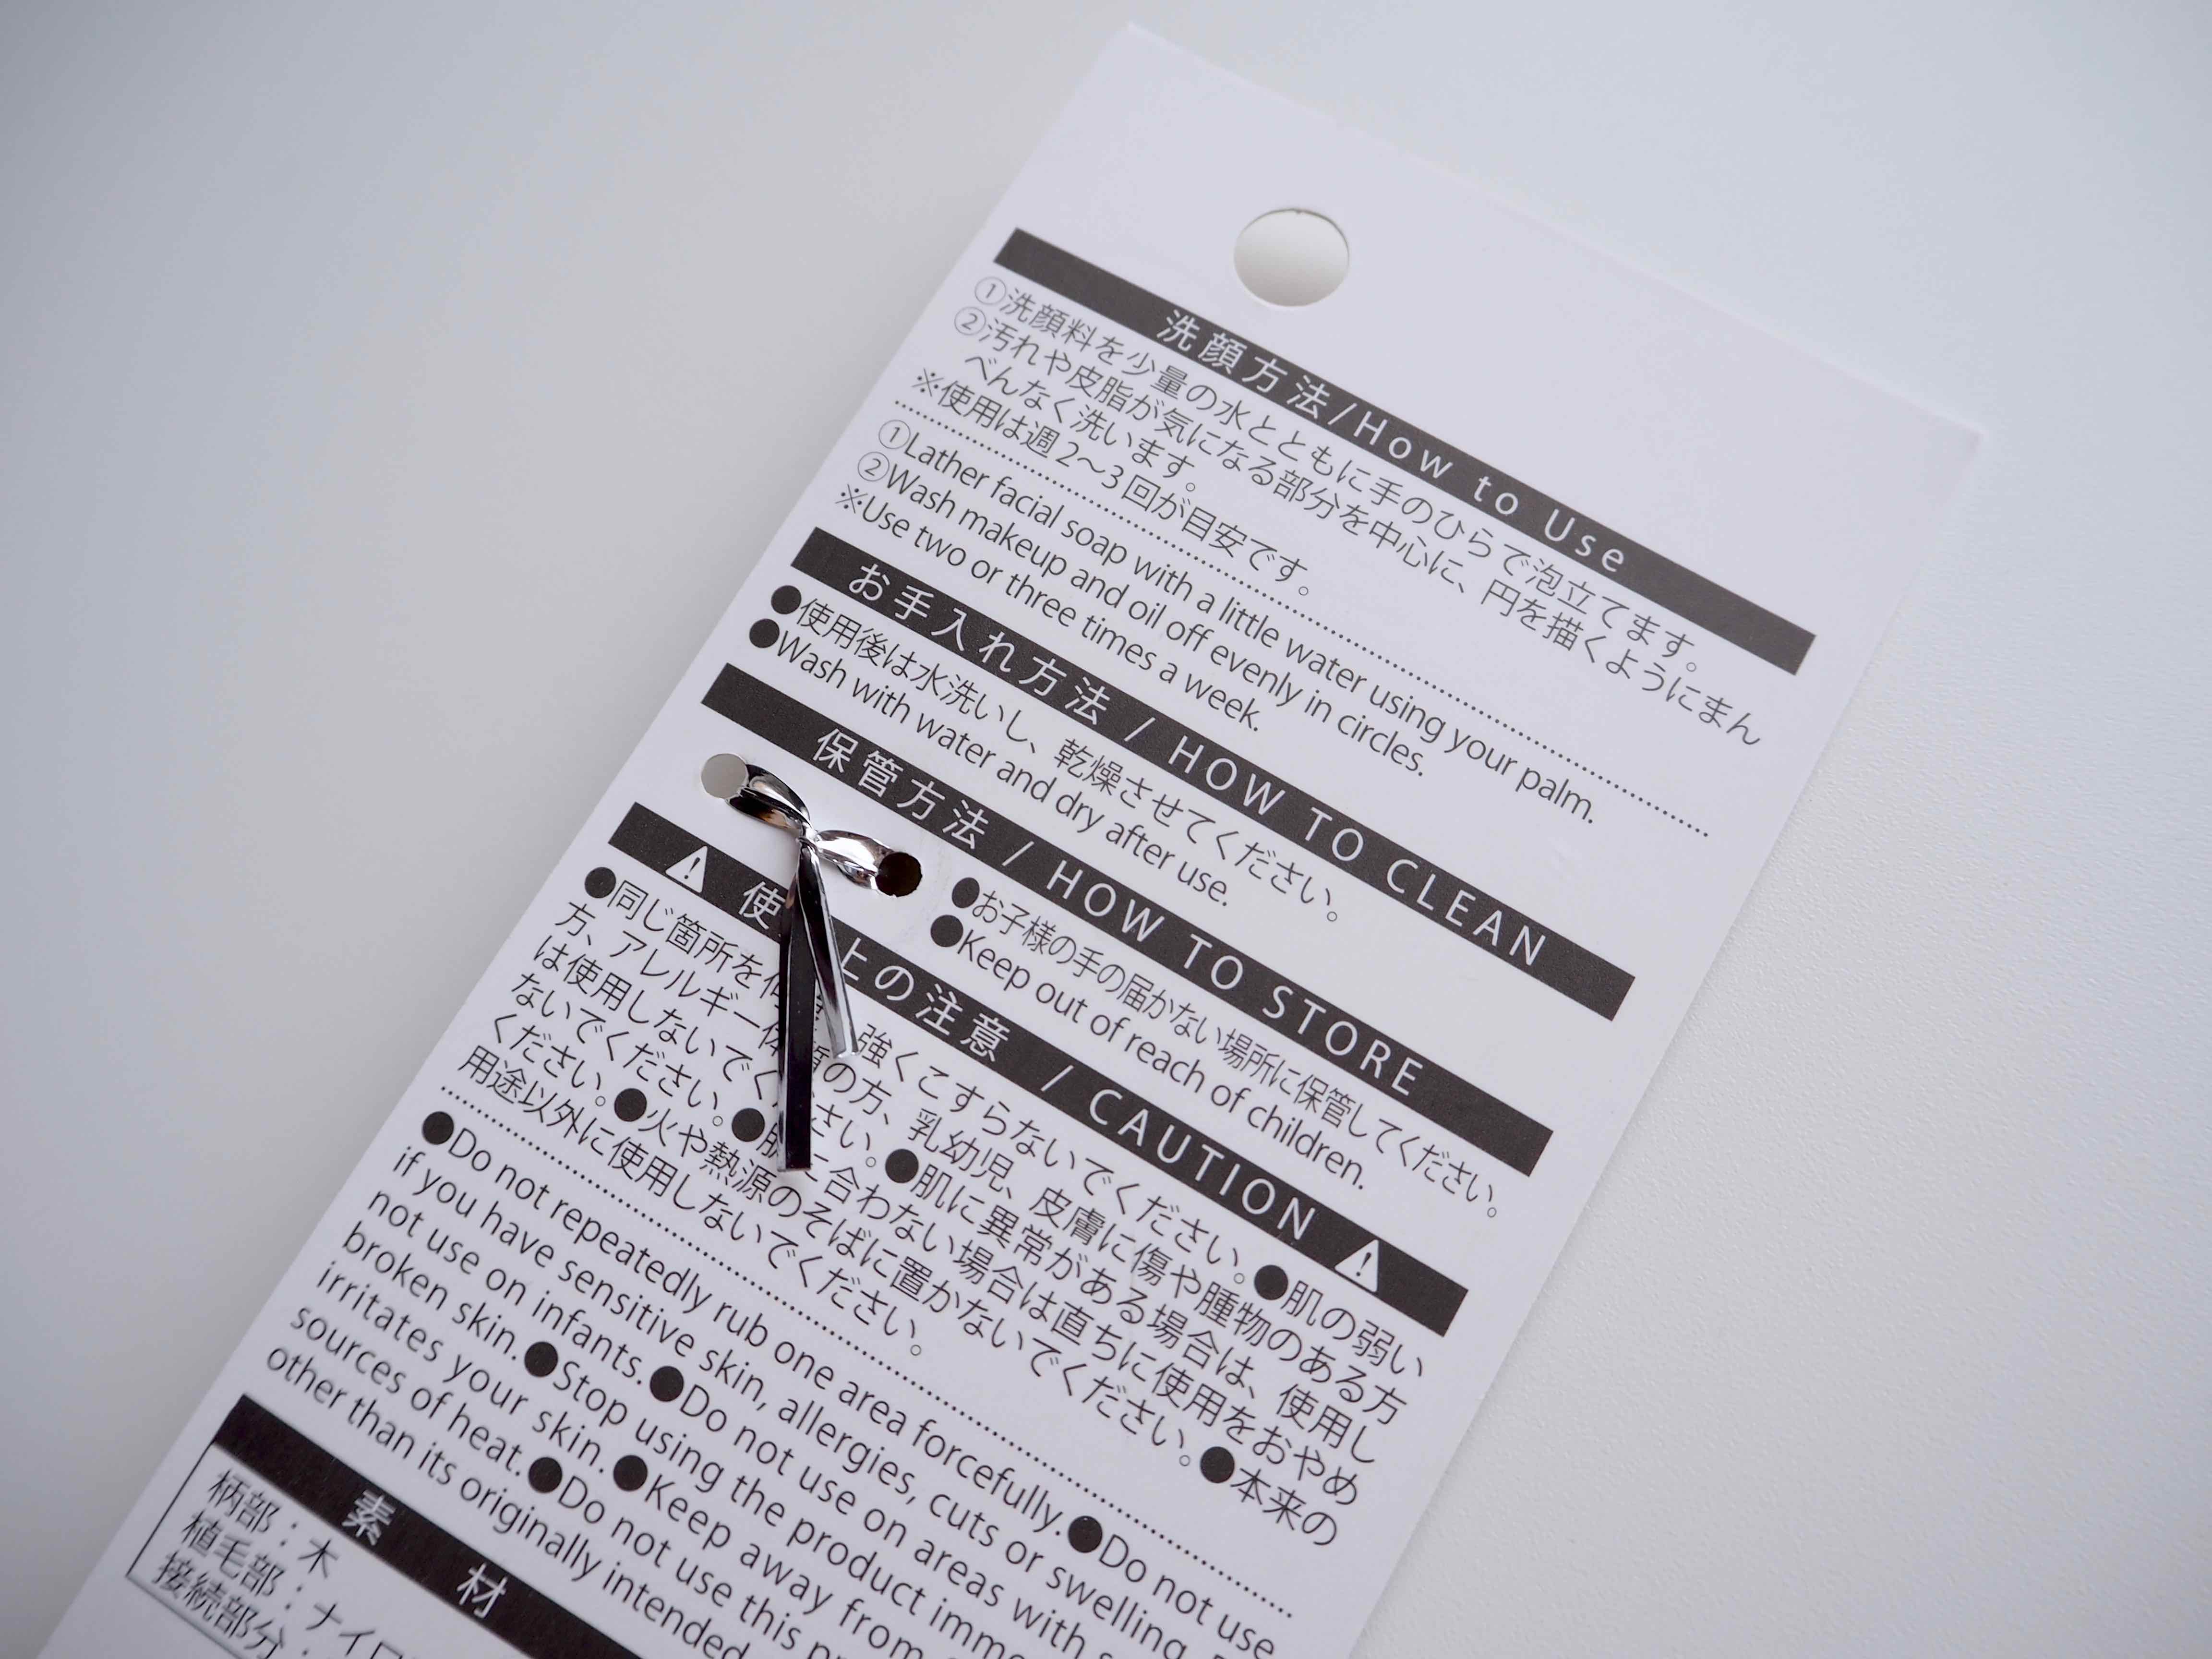 洗顔方法/How to Use
①洗顔料を少量の水とともに手のひらで泡立てます。
②汚れや皮脂が気になる部分を中心に、円を描くようにまん
べんなく洗います。
※使用は週2〜3回が目安です。
①Lather facial soap with a little water using your palm.
②Wash makeup and oil off evenly in circles.
※Use two or three times a week.
お手入れ方法 / HOW TO CLEAN
●使用後は水洗いし、乾燥させてください。
●Wash with water and dry after use.
保管方法 / HOW TO STORE
●お子様の手の届かない場所に保管してください。
●Keep out of reach of children.
⚠ 使 上の注意 / CAUTION ⚠
●同じ箇所を 強くこすらないでください。●肌の弱い
方、アレルギー体質の方、乳幼児、皮膚に傷や腫物のある方
は使用しないでください。●肌に異常がある場合は、使用し
ないでください。● に合わない場合は直ちに使用をおやめ
ください。●火や熱源のそばに置かないでください。●本来の
用途以外に使用しないでください。
●Do not repeatedly rub one area forcefully.●Do not use
if you have sensitive skin, allergies, cuts or swelling.
not use on infants.●Do not use on areas with
broken skin.●Stop using the product
irritates your skin.●Keep away from
sources of heat.●Do not use this
other than its originally intended
素材
柄部：木
植毛部：ナイロ
接続部分：